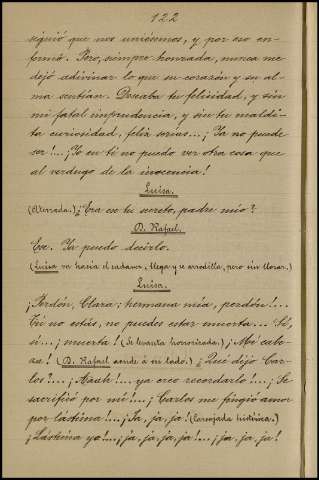 122
siguió que nos uniésemos, y por eso en-
fermó. Pero, siempre honrada, nunca me
dejó adivinar lo que su corazón y su al-
ma sentían. Deseaba tu felicidad, y sin
mi fatal imprudencia, y sin tu maldi-
ta curiosidad, feliz serías...; Ya no puede
ser!...; Yo en ti no puedo ver otra cosa que
al verdugo de la inocencia!
Luisa.
(Aterrada.) ¿Era ese tu secreto, padre mío?
D. Rafael.
Ese. Ya puedo decirlo.
(Luisa va hacia el cadáver, llega y se arrodilla, pero sin llorar.)
Luisa.
¡Perdón, Clara; hermana mía, perdón!...
Tú no estás, no puedes estar muerta... Sí,
sí...; muerta! (Se levanta horrorizada.) ¡Mi cabe-
za! (D. Rafael acude á su lado.) ¿Qué dijo Car-
los?...; Aaah!... ya creo recordarlo!...; Se
sacrificó por mí!...; Carlos me fingió amor
por lástima!...; Ja, ja, ja! (Carcajada histérica.)
¡Lástima yo!...; ja, ja, ja, ja!...; ja, ja, ja!